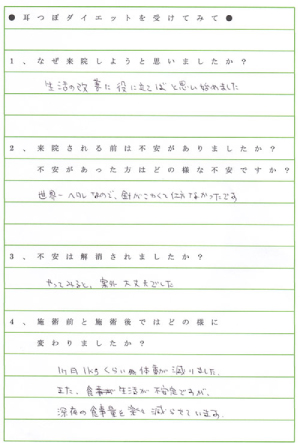 ●耳つぼダイエットを受けてみて●
1、なぜ来院しようと思いましたか？
生活の改善に役に立てばと思い始めました
2、来院される前は不安がありましたか？
不安があった方はどの様な不安ですか？
世界一ヘタレなので、針がこわくて仕方なかったです
3、不安は解消されましたか？
やってみると、案外大丈夫でした
4、施術前と施術後ではどの様に
変わりましたか？
1ヶ月1kgくらい体重が減りました。
また、食事生活が不安定ですが、
深夜の食事量を減らせています。